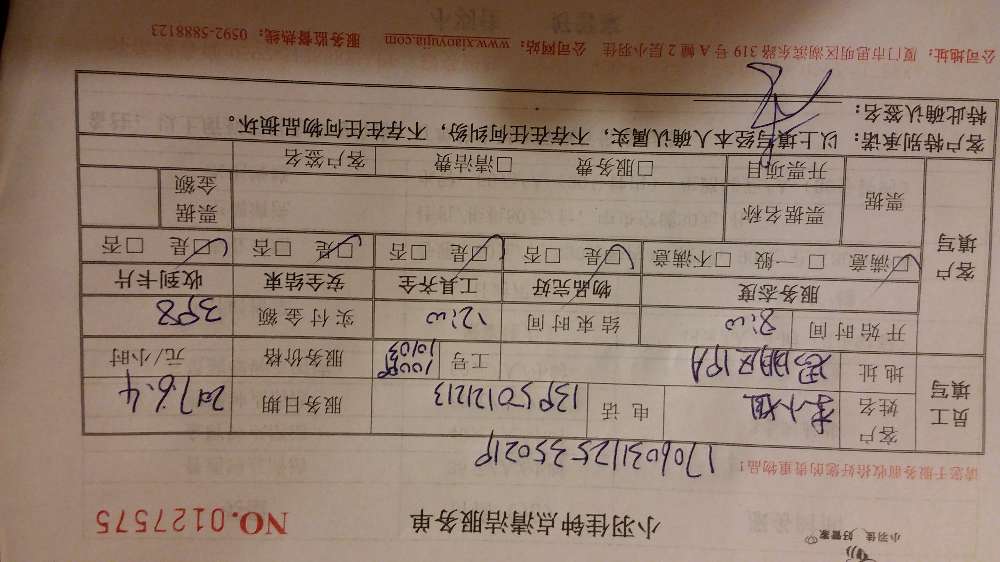 小羽佳 好管家
小羽佳钟点清洁服务单 NO.0127575
请您于服务前收拾好您的贵重物品!
员工填写 客户姓名 李小姐 电话 13950121213 服务日期 2017.6.4
地址 思明区19A 工号 服务价格 元/小时
开始时间 8:00 结束时间 12:00 实付金额 398
客户填写 服务态度 物品完好 工具齐全 安全结束 收到卡片
□满意 □一般 □不满意 □是 □否 □是 □否 □是 □否 □是 □否
票据 票据名称 票据金额
开票项目 □服务费 □清洁费 客户签名
客户特别承诺: 以上填写经本人确认属实,不存在任何纠纷,不存在任何物品损坏。
特此确认签名:
公司地址: 厦门市思明区湖滨东路 319 号 A 幢 2 层小羽佳 公司网站: www.xiaoyujia.com 服务监督热线: 0592-5888123